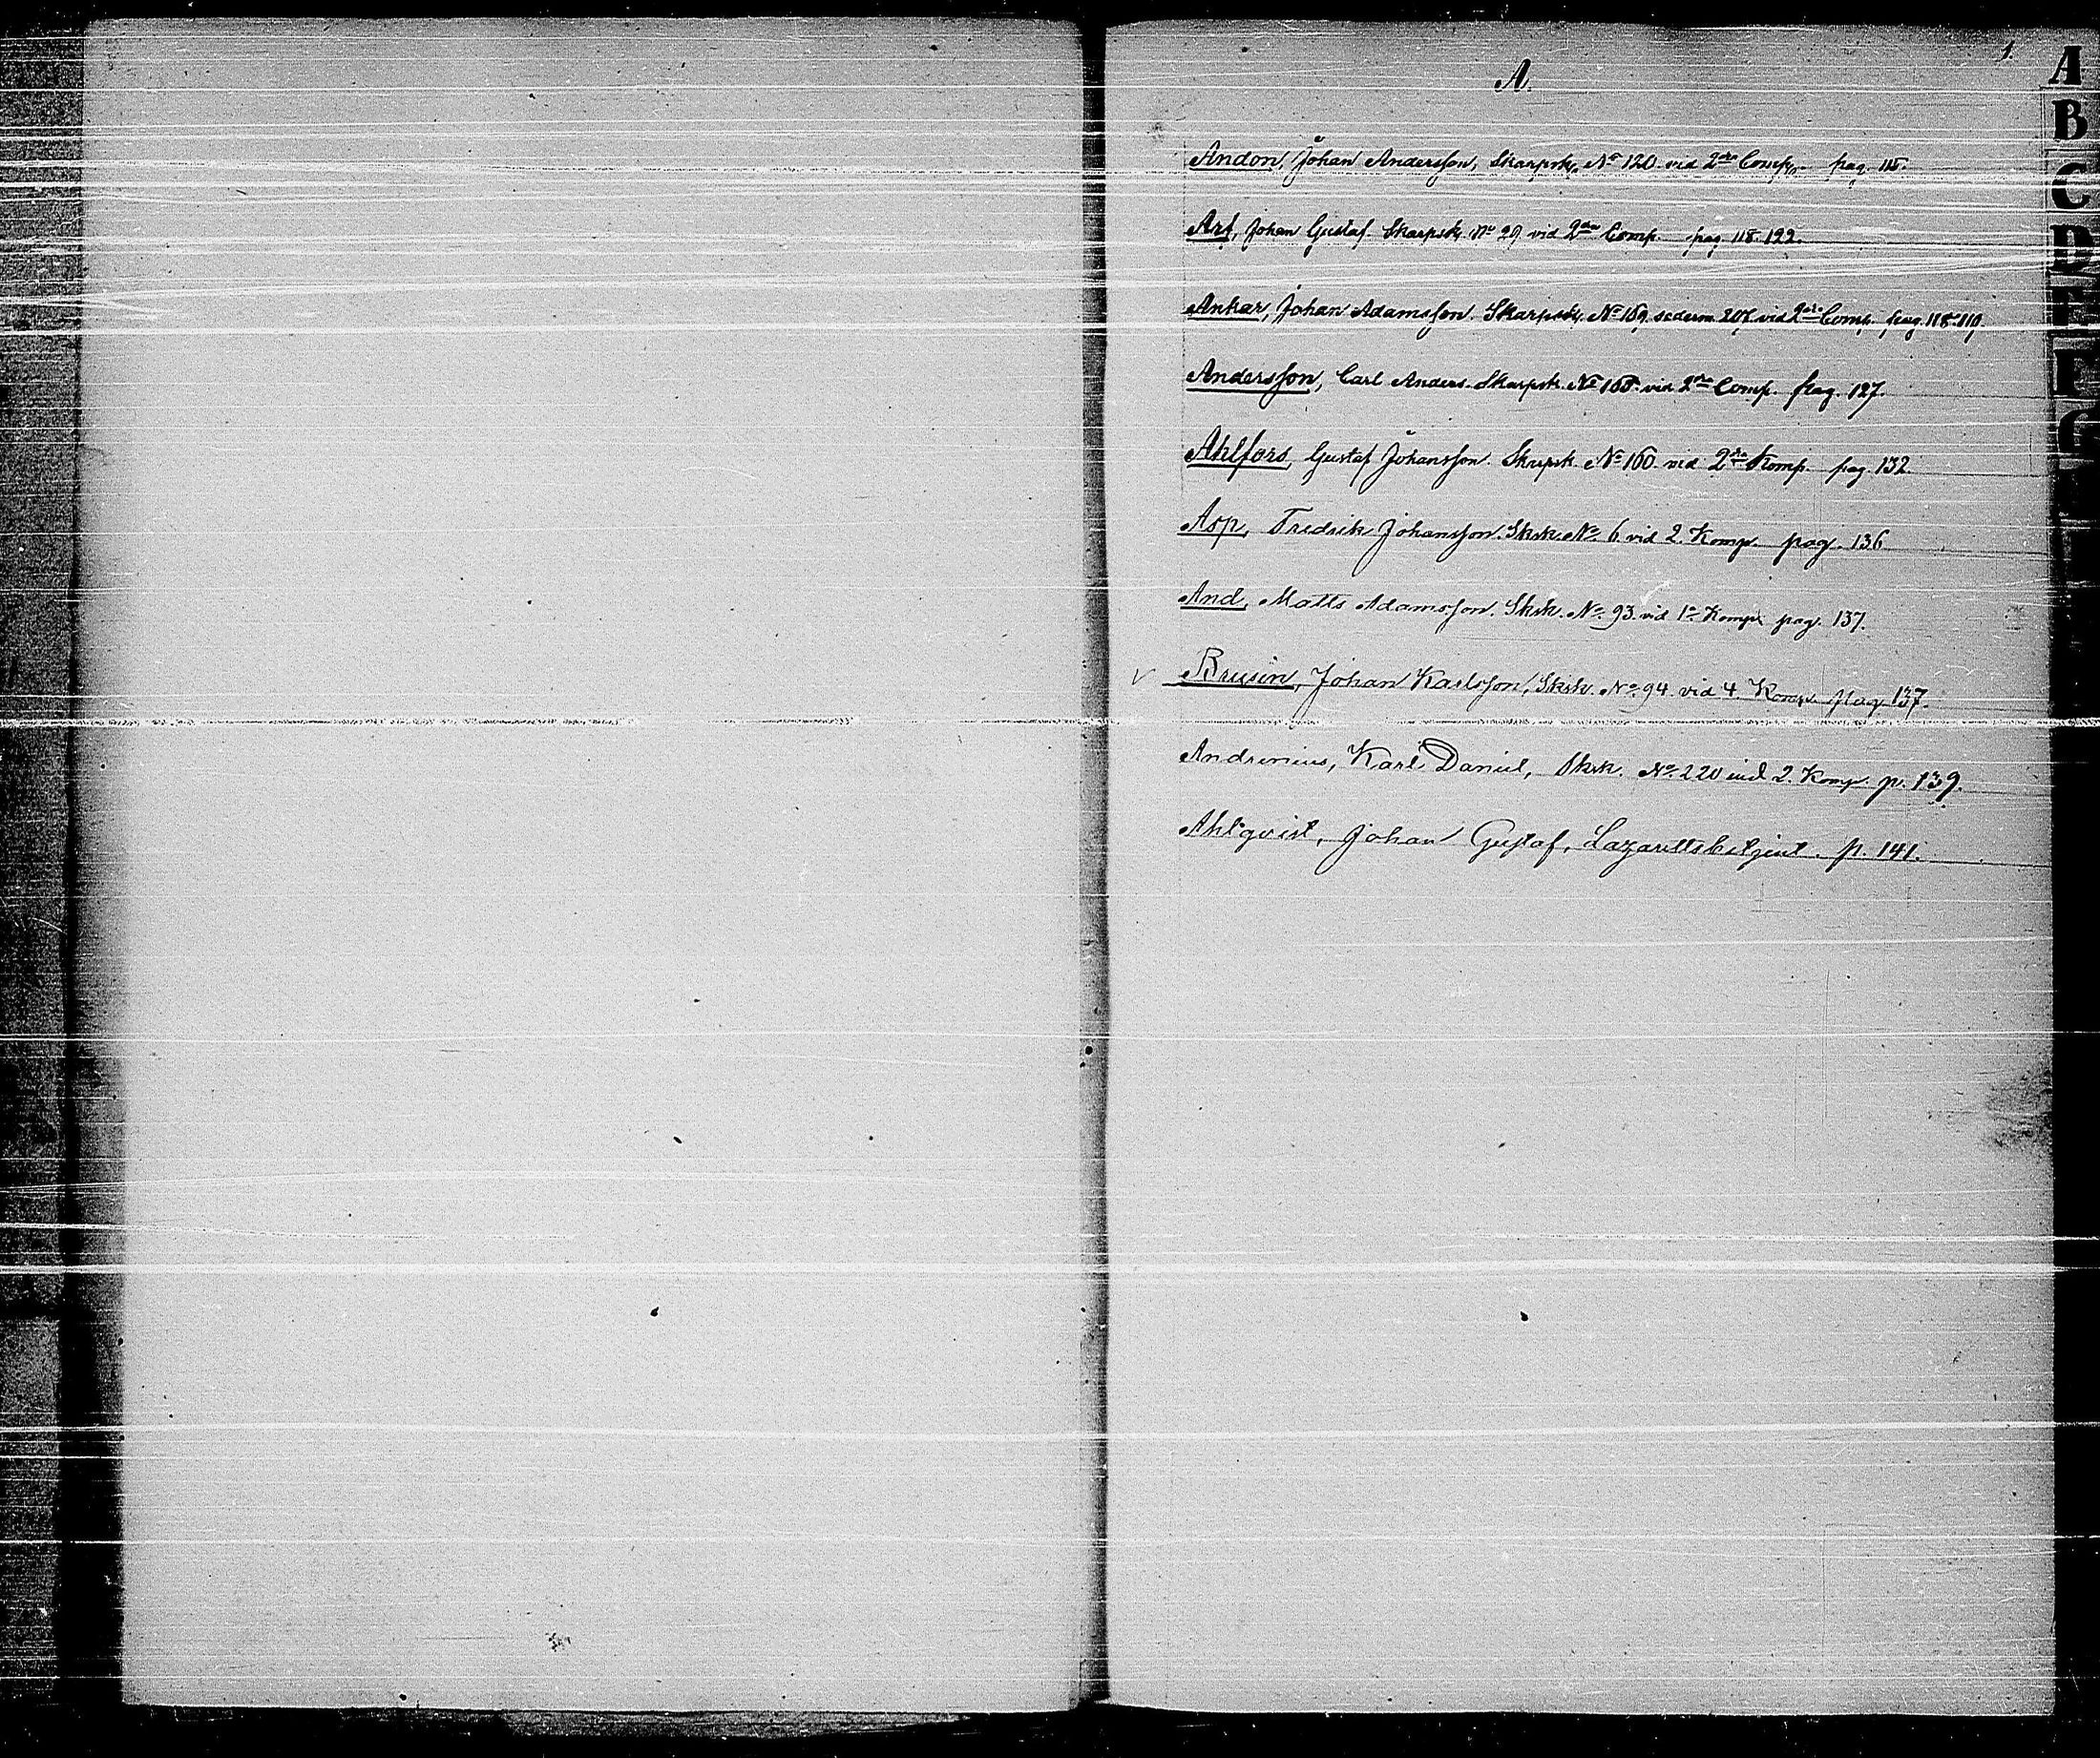 1.
A.
Andon, Johan Andersson, Skarpsk. No 120 vid 2dra Comp. pag. 115.
Arf, Johan Gustaf Skarpsk. No 29 vid 2dra Comp. pag. 118. 122.
Ankar, Johan Adamsson. Skarpsk. No 169 sederm. 207 vid 2dra Comp. pag. 118. 119.
Andersson, Carl Anders. Skarpsk. No 160 vid 2dra Comp. pag. 127.
Ahlfors, Gustaf Johansson. Skarpsk. No 160 vid 2dra Komp. pag. 132
Asp, Fredrik Johansson. Sksk. No 6 vid 2. Komp. pag. 136
And, Matts Adamsson. Sksk. No 93 vid 1a Komp. pag. 137.
Brusin, Johan Karlsson, Sksk. No 94 vid 4 Komp. pag. 137.
Andrenius, Karl Daniel, Sksk. No 220 vid 2. Komp. p. 139.
Ahlqvist, Johan Gustaf, Lazarettsbetjent. p. 141.
A
B
C
D
E
F
G